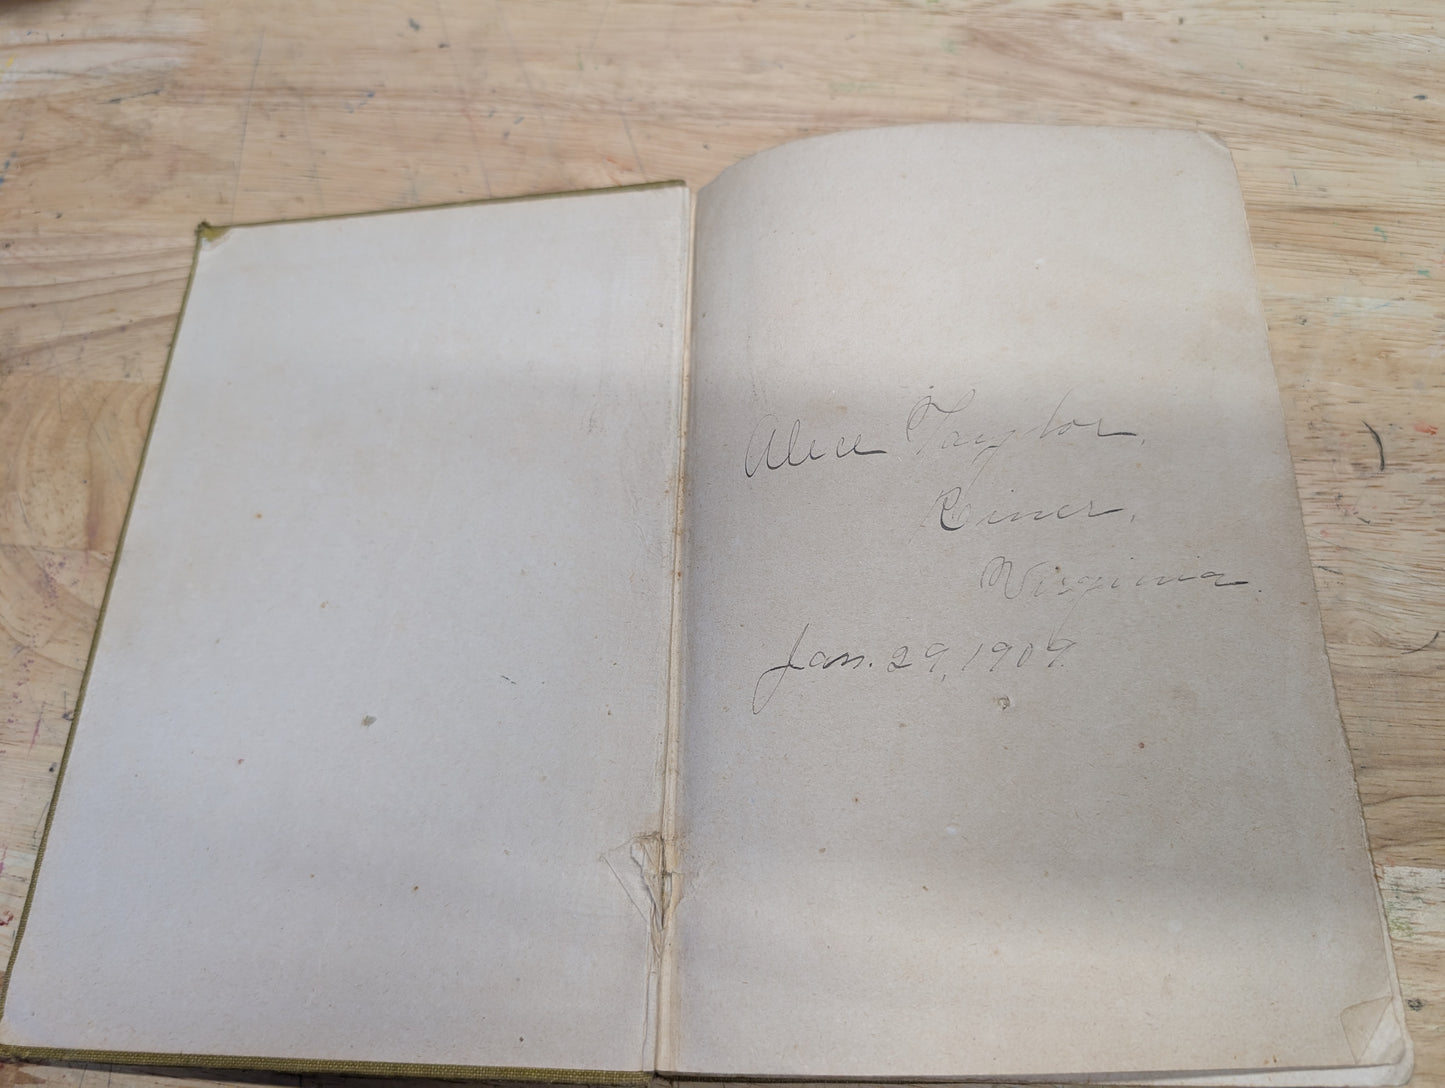 Alice Taylor,
Riner,
Virginia.
Jan. 29, 1909.